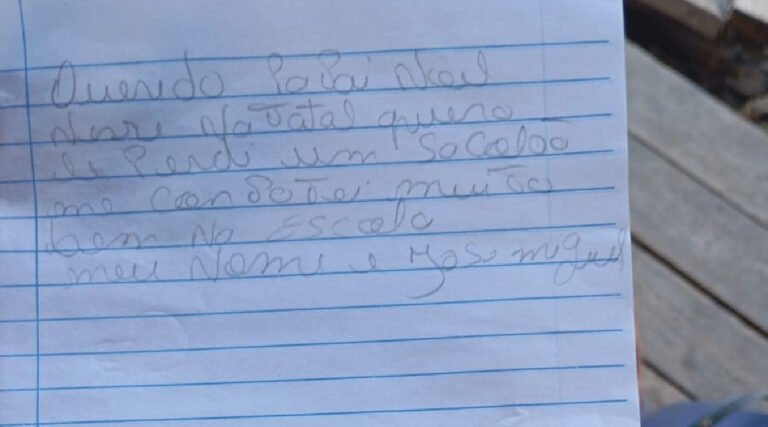 Querido Papai Noel
Nesse Natal quero
li Perdi um Sacolão
me Conportei muito
bem na Escola
meu Nome e Jose miguel